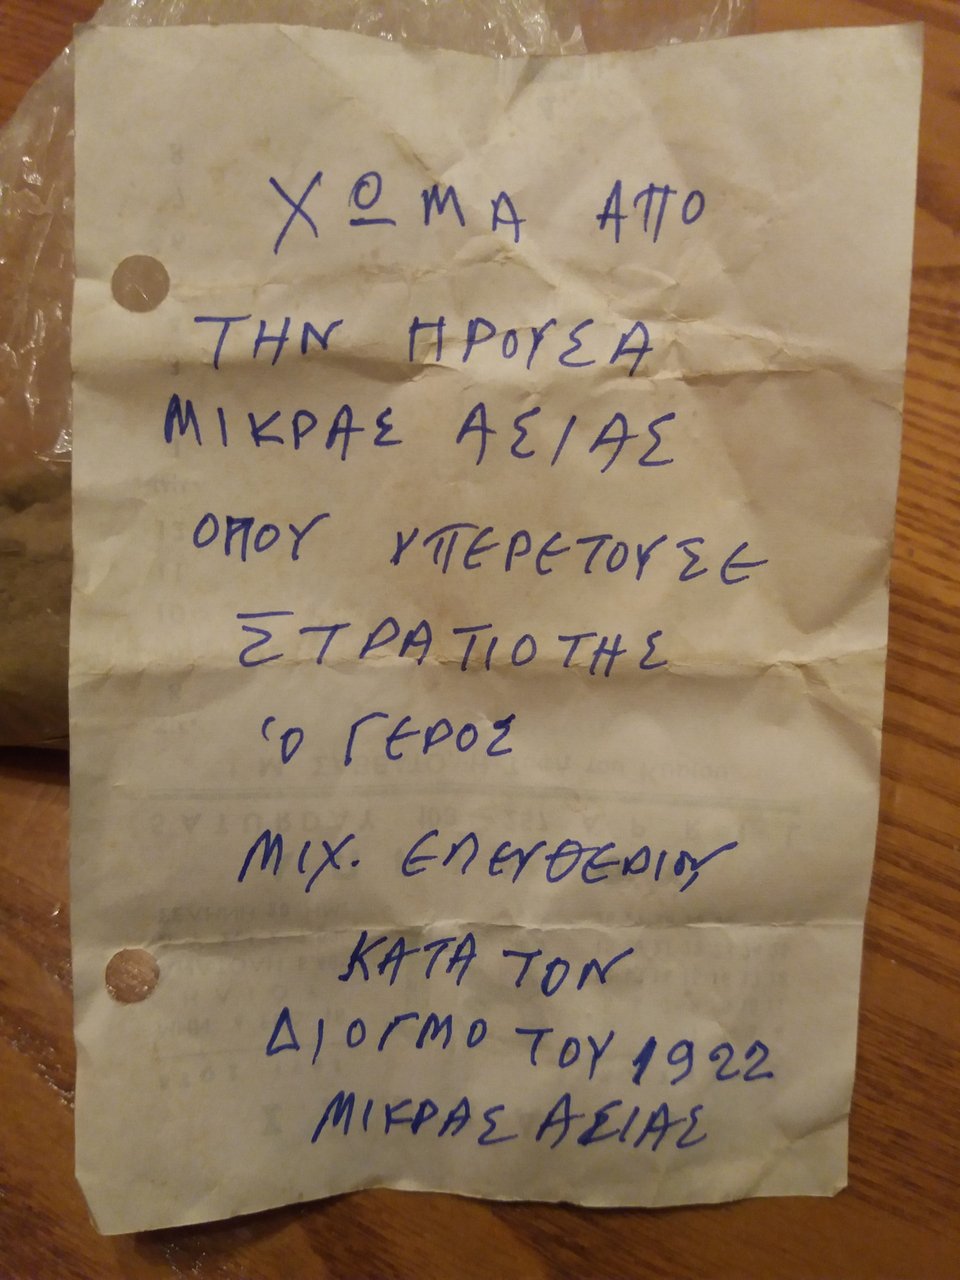 ΧΩΜΑ ΑΠΟ
ΤΗΝ ΠΡΟΥΣΑ
ΜΙΚΡΑΣ ΑΣΙΑΣ
ΟΠΟΥ ΥΠΕΡΕΤΟΥΣΕ
ΣΤΡΑΤΙΟΤΗΣ
Ὁ ΓΕΡΟΣ
ΜΙΧ. ΕΛΕΥΘΕΡΙΟΥ
ΚΑΤΑ ΤΟΝ
ΔΙΟΓΜΟ ΤΟΥ 1922
ΜΙΚΡΑΣ ΑΣΙΑΣ
SATURDAY